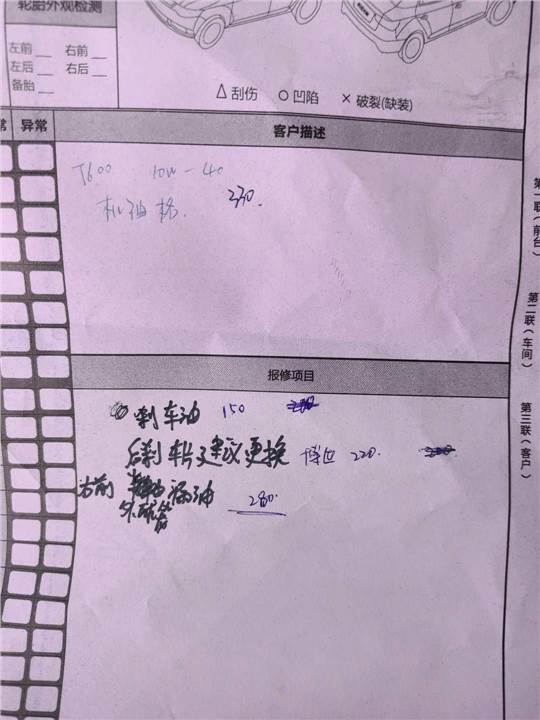 轮胎外观检测
左前__ 右前__
左后__ 右后__
备胎__
△刮伤 ○凹陷 ×破裂(缺装)
常 异常
客户描述
T600 10w-40
机油格. 330.
第一联(前台)
第二联(车间)
第三联(客户)
报修项目
刹车油 150
后刹车片建议更换 博世 220.
右前 漏油 280.
外球笼